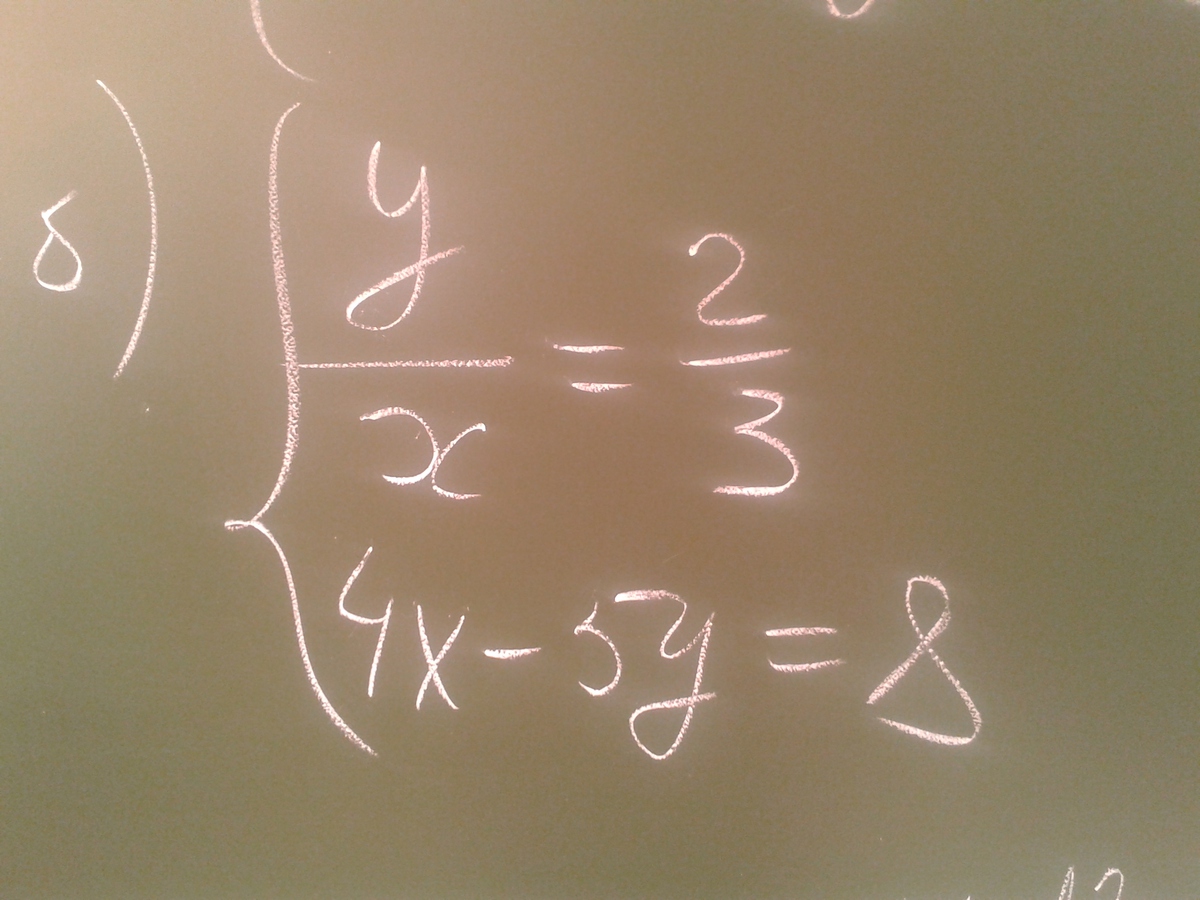 б) { y/x = 2/3
4x - 5y = 8